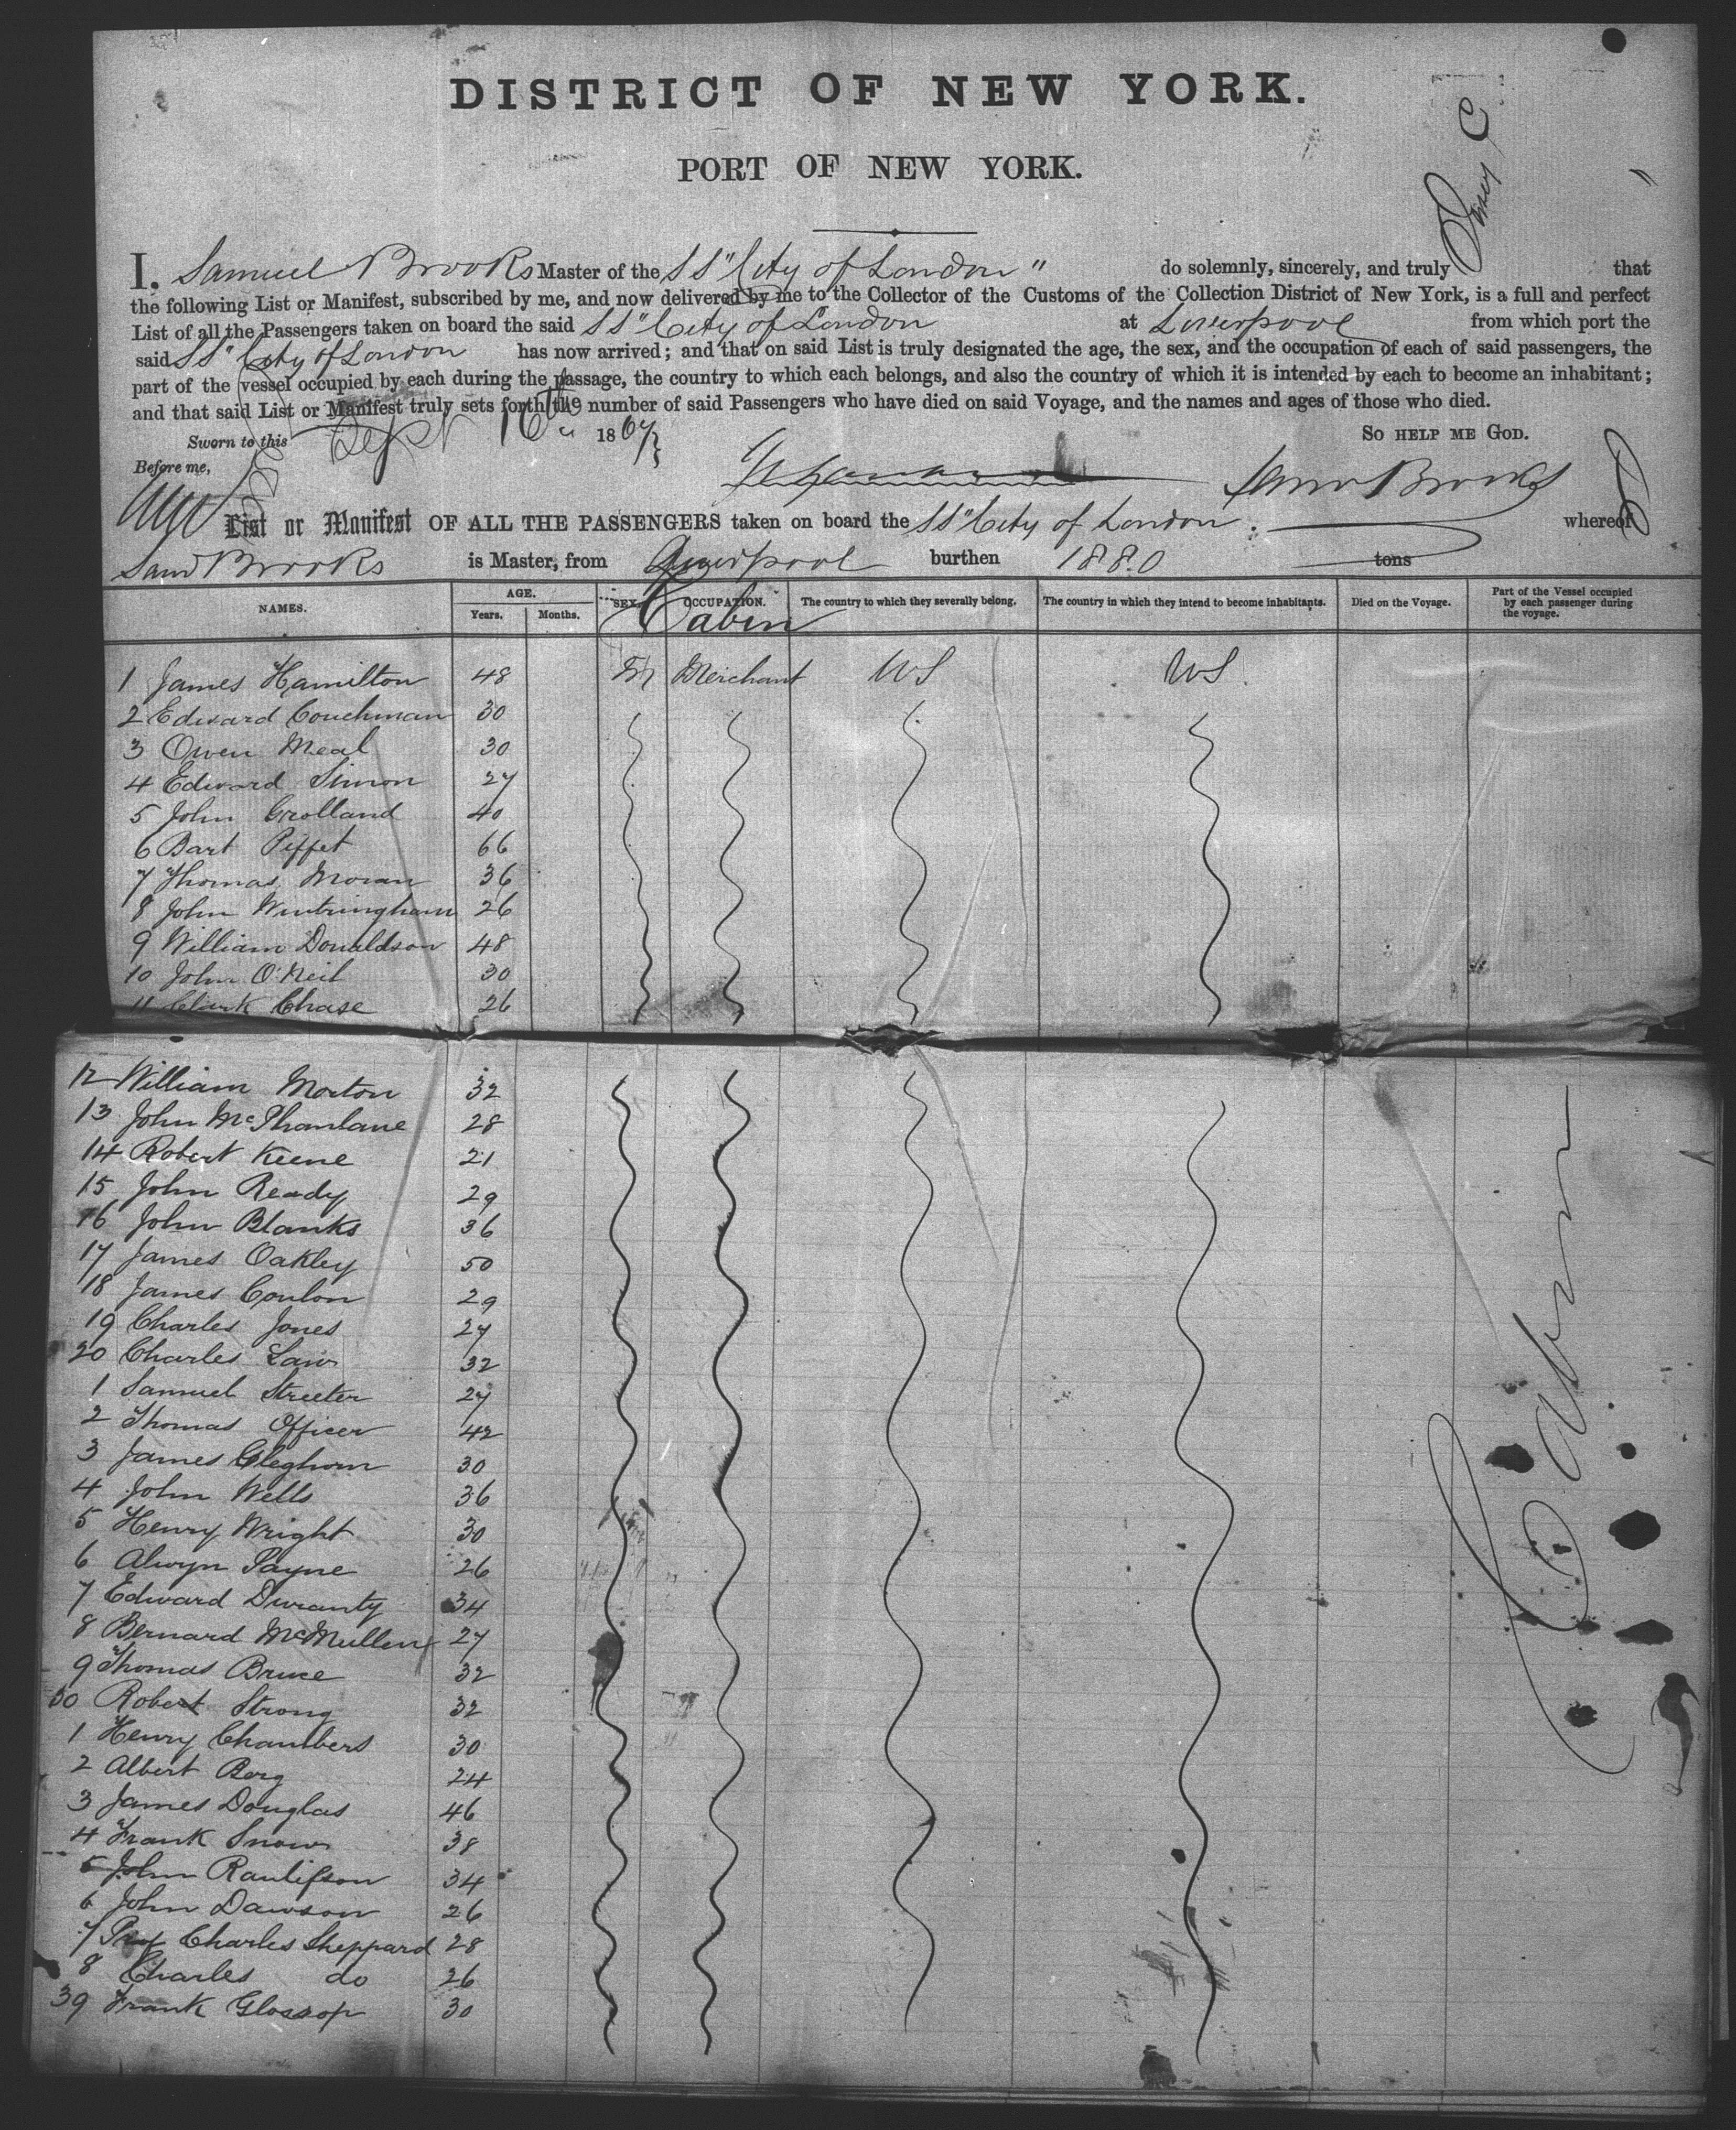 DISTRICT OF NEW YORK.
PORT OF NEW YORK.
I, Samuel Brooks Master of the SS "City of London" do solemnly, sincerely, and truly Swear that
the following List or Manifest, subscribed by me, and now delivered by me to the Collector of the Customs of the Collection District of New York, is a full and perfect
List of all the Passengers taken on board the said SS "City of London at Liverpool from which port the
said SS "City of London has now arrived; and that on said List is truly designated the age, the sex, and the occupation of each of said passengers, the
part of the vessel occupied by each during the passage, the country to which each belongs, and also the country of which it is intended by each to become an inhabitant;
and that said List or Manifest truly sets forth the number of said Passengers who have died on said Voyage, and the names and ages of those who died.
Sworn to this Sept 16th 1867 So help me God.
Before me,
Saml Brooks
List or Manifest OF ALL THE PASSENGERS taken on board the SS "City of London whereof
Saml Brooks is Master, from Liverpool burthen 1880 tons
NAMES. AGE. Years. Months. SEX. OCCUPATION. The country to which they severally belong. The country in which they intend to become inhabitants. Died on the Voyage. Part of the Vessel occupied by each passenger during the voyage.
Cabin
1 James Hamilton 48 M Merchant US US
2 Edward Couchman 30
3 Owen Meal 30
4 Edward Simon 27
5 John Grolland 40
6 Bart Piffet 66
7 Thomas Moran 36
8 John Wintringham 26
9 William Donaldson 48
10 John O'Neil 30
11 Clark Chase 26
12 William Morton 32
13 John McPhanlane 28
14 Robert Keene 21
15 John Ready 29
16 John Blanks 36
17 James Oakley 50
18 James Conlon 29
19 Charles Jones 27
20 Charles Law 32
1 Samuel Streeter 27
2 Thomas Officer 42
3 James Cleghorn 30
4 John Wells 36
5 Henry Wright 30
6 Alwyn Payne 26
7 Edward Duranty 34
8 Bernard McMullen 27
9 Thomas Bruce 32
30 Robert Strong 32
1 Henry Chambers 30
2 Albert Berg 24
3 James Douglas 46
4 Frank Snow 38
5 John Raulifson 34
6 John Dawson 26
7 Charles Sheppard 28
8 Charles do 26
39 Frank Glossop 30
Cabin